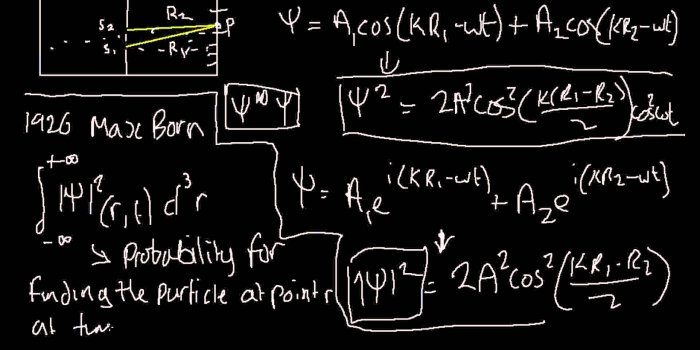 S₂ R₂ P
S₁ R₁
Ψ = A₁cos(KR₁-wt) + A₂cos(KR₂-wt)
Ψ² = 2A²cos²(K(R₁-R₂)/2)cos²wt
Ψ*Ψ
1926 Max Born
∫ |Ψ|²(r,t) d³r
+∞
-∞
↘ Probability for
finding the particle at point r
at tim
Ψ = A₁e^i(KR₁-wt) + A₂e^i(KR₂-wt)
|Ψ|² = 2A²cos²(KR₁-R₂/2)